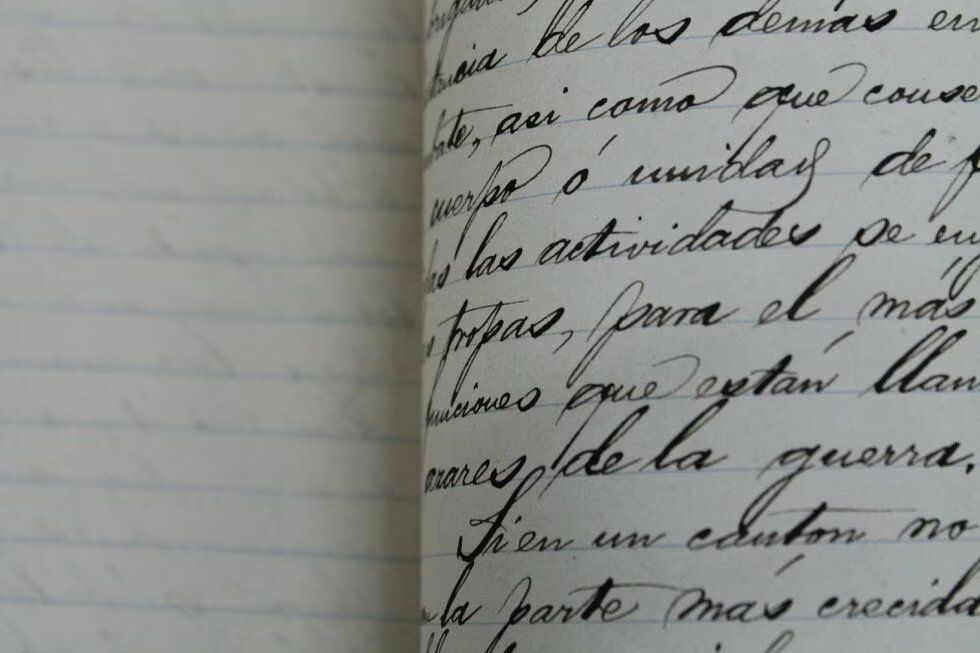 de los demás en
así como que conse
cuerpo ó unidad de
las actividades se
tropas, para el más
que están llam
azares de la guerra.
Si en un canton no
la parte más crecida